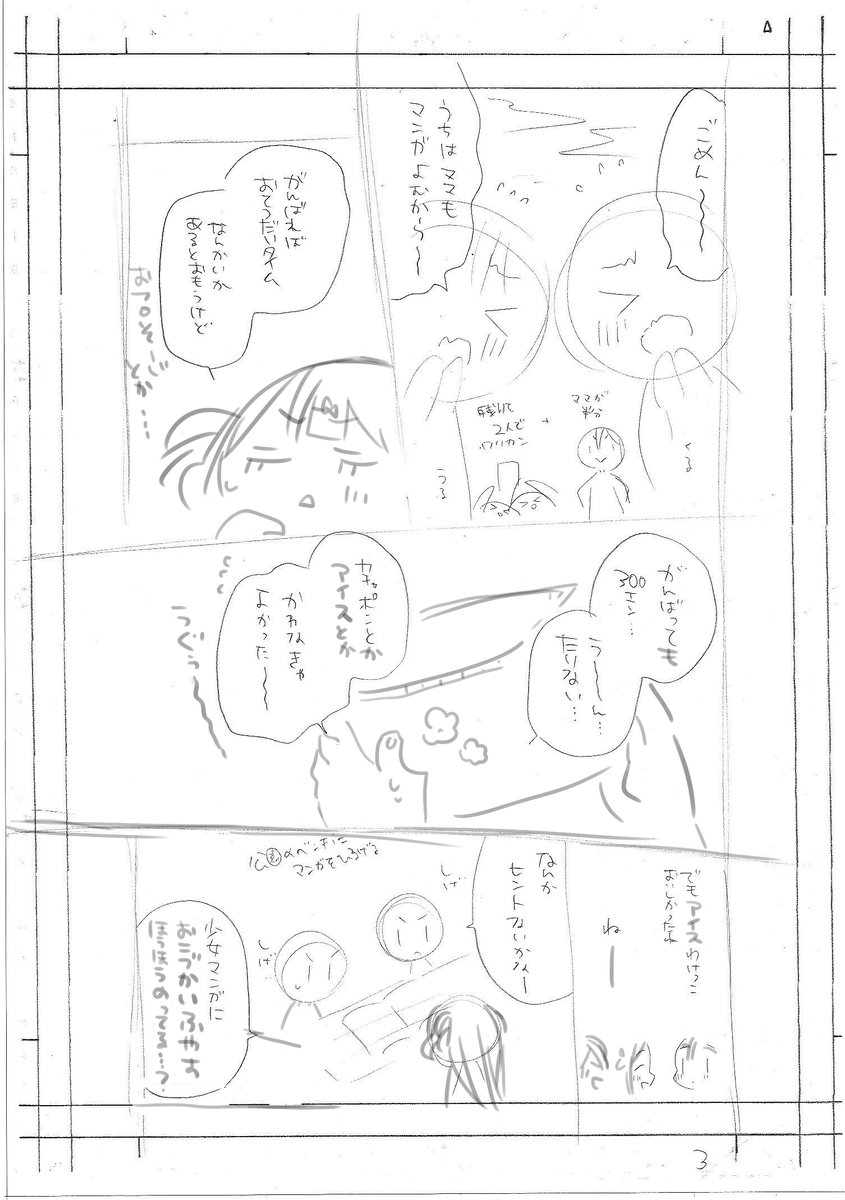 ごめん〜〜〜
うちはママも
マンガよむから〜
ママが
半分
+
残りを
2人で
ワリカン
うる
がんばれば
おてつだいタイム
なんかいか
あるとおもうけど
おフロそーじ
とか…
がんばっても
300エン…
う〜〜ん…
たりない…
ガチャポンとか
アイスとか
かわなきゃ
よかった〜〜
でもアイスわけっこ
おいしかったね
ねー
なんか
ヒントないかなー
しげ
公園のベンチに
マンガをひろげる
しげ
少女マンガに
おこづかいふやす
ほうほうのってる…?
3